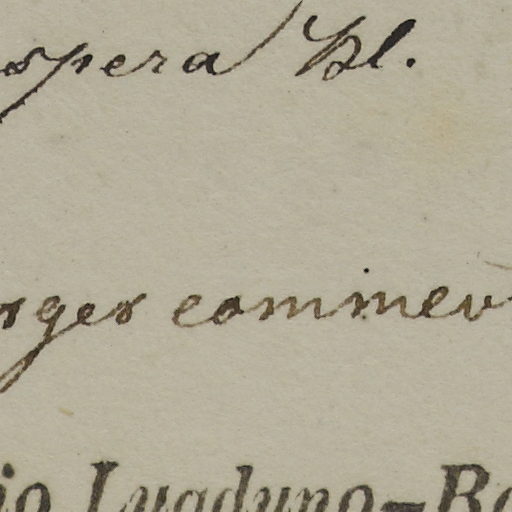 spera Bl.
rges commer
io Lugduno-Ba